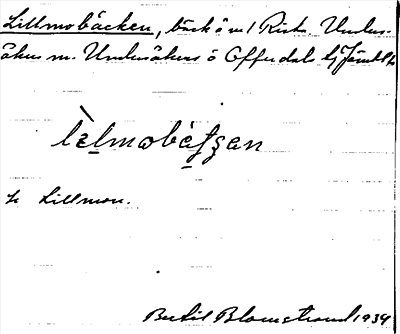 Lillmobäcken, bäck ö m l Rista. Unders-
åkers m. Undersåkers ö Offerdals lg Jämtl l.
lìlmobèʃʂan
h Lillmon.
Bertil Blomstrand 1934